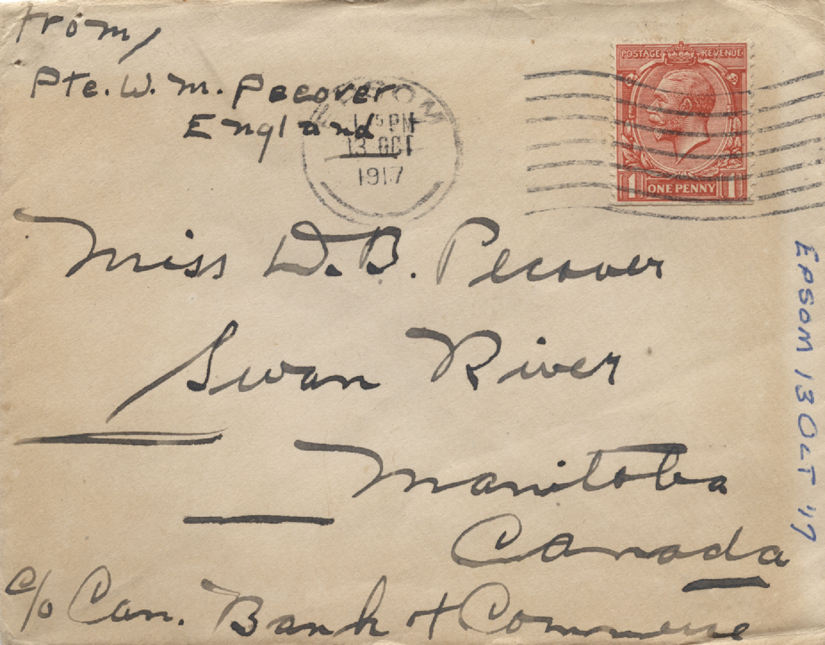 From,
Pte. W. M. Pecover
England
EPSOM
PM
13 OCT
1917
POSTAGE REVENUE
1 ONE PENNY 1
Miss W. B. Pecover
Swan River
Manitoba
Canada
c/o Can. Bank of Commerce
EPSOM 13 OCT '17